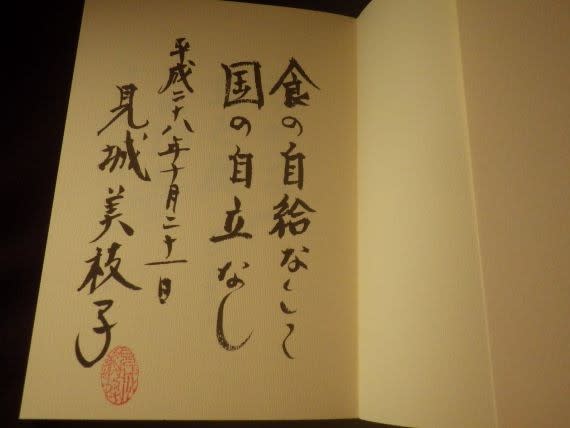 食の自給なくして
国の自立なし
平成二十八年十月二十一日
見城美枝子